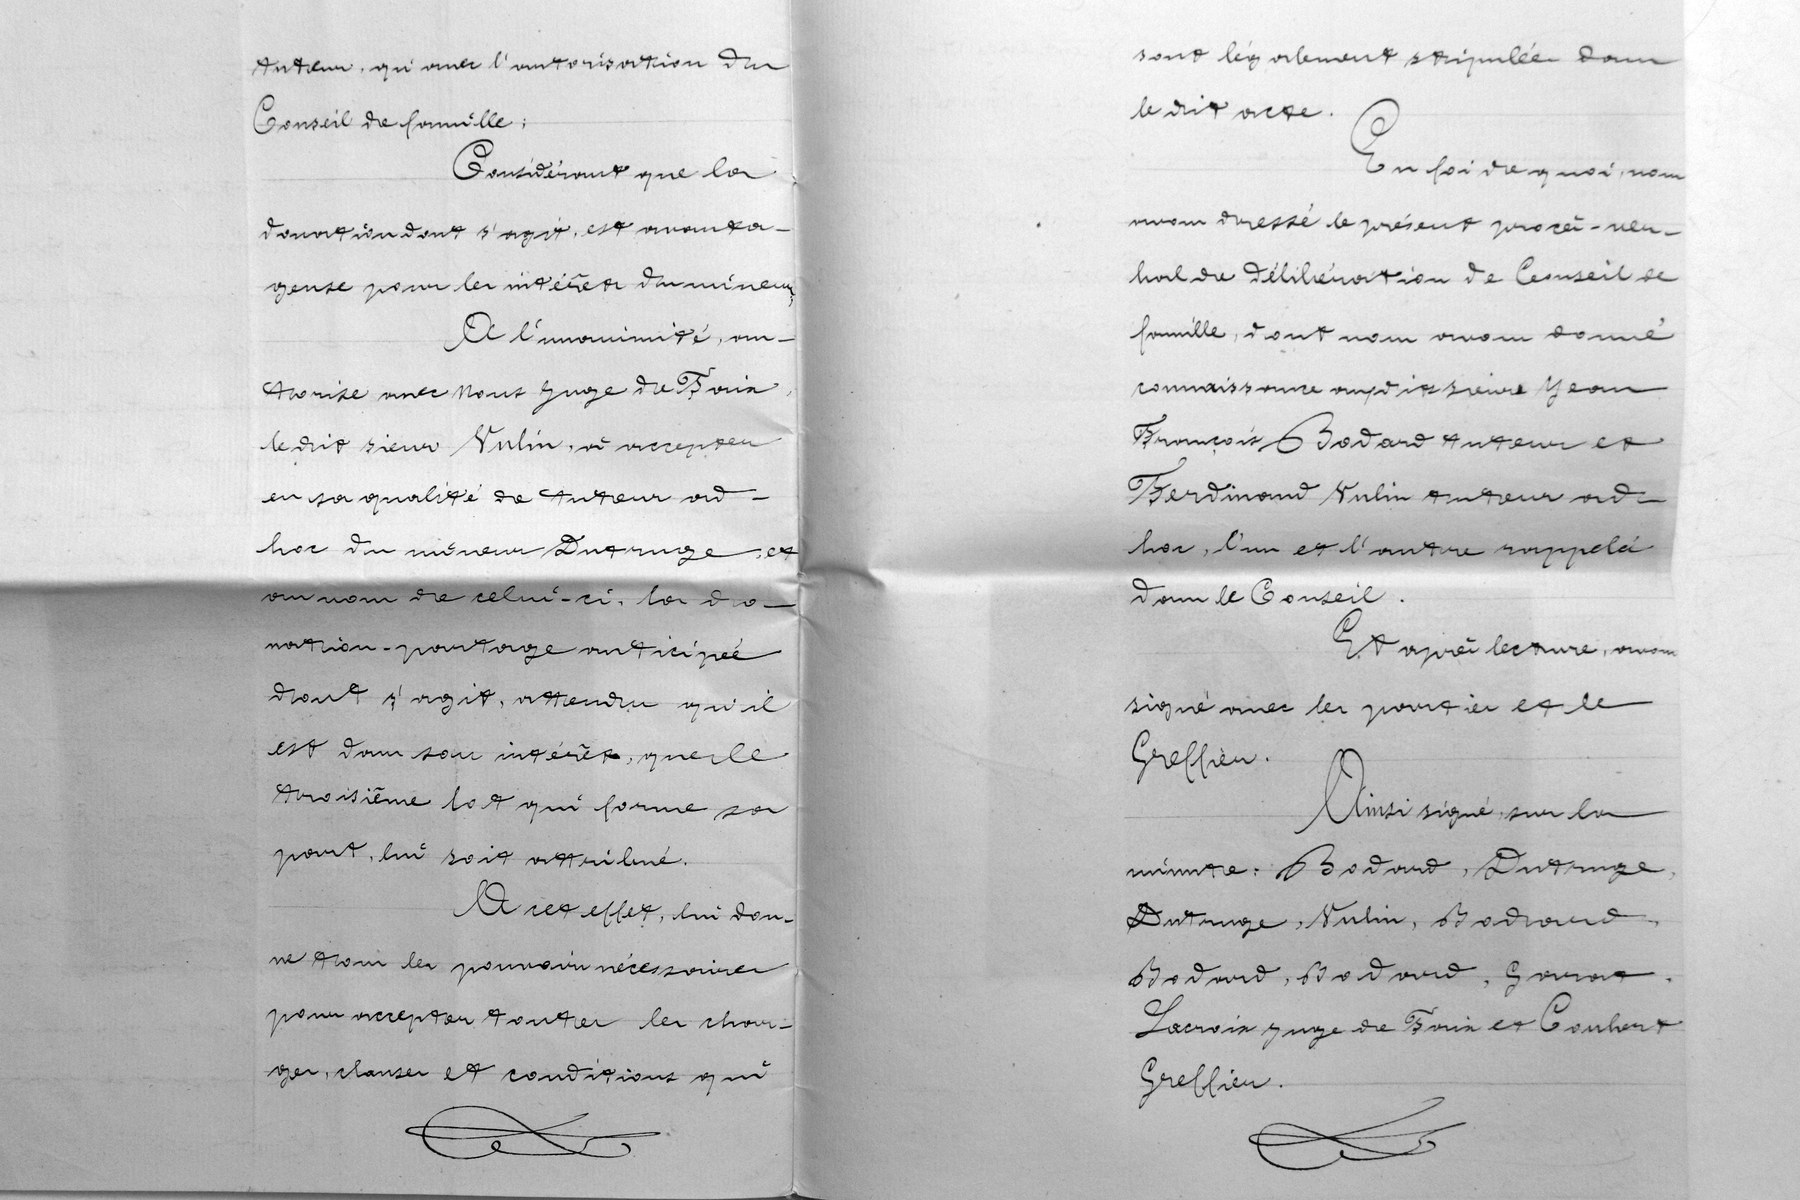 tuteur, qu'avec l'autorisation du
Conseil de famille ;
Considérant que la
donation dont s'agit, est avanta-
geuse pour les intérêts du mineur,
A l'unanimité, au-
torise avec Nous Juge de Paix,
le dit sieur Vulin, à accepter
en sa qualité de tuteur ad-
hoc du mineur Dutruge, et
au nom de celui-ci, la do-
nation-partage anticipée
dont s'agit, attendu qu'il
est dans son intérêt, que le
troisième lot qui forme sa
part, lui soit attribué.
A cet effet, lui don-
ne tous les pouvoirs nécessaires
pour accepter toutes les char-
ges, clauses et conditions qui
sont légalement stipulées dans
le dit acte.
En foi de quoi, nous
avons dressé le présent procès-ver-
bal de délibération de Conseil de
famille, dont nous avons donné
connaissance auxdits sieurs Jean
François Bodard tuteur et
Ferdinand Vulin tuteur ad-
hoc, l'un et l'autre rappelés
dans le Conseil.
Et après lecture, avons
signé avec les parties et le
Greffier.
Ainsi signé, sur la
minute : Bodard, Dutruge,
Dutruge, Vulin, Bodard,
Bodard, Bodard, Garat,
Lacroix juge de Paix et Coubert
Greffier.